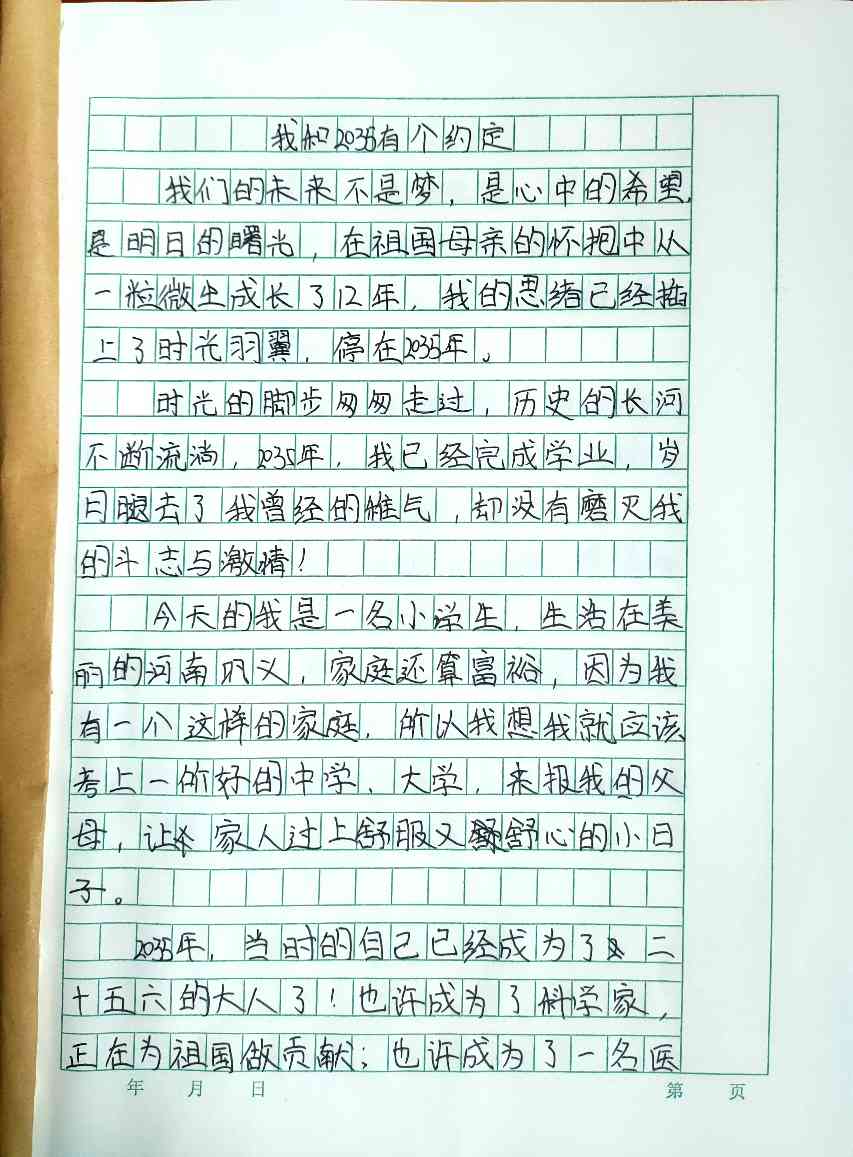 我和2035有个约定
我们的未来不是梦，是心中的希望，
是明日的曙光，在祖国母亲的怀抱中从
一粒微尘成长了12年，我的思绪已经插
上了时光羽翼，停在2035年。
时光的脚步匆匆走过，历史的长河
不断流淌，2035年，我已经完成学业，岁
月腿去了我曾经的稚气，却没有磨灭我
的斗志与激情！
今天的我是一名小学生，生活在美
丽的河南巩义，家庭还算富裕，因为我
有一个这样的家庭，所以我想我就应该
考上一所好的中学、大学，来报我的父
母，让家人过上舒服又舒心的小日
子。
2035年，当时的自己已经成为了二
十五六的大人了！也许成为了科学家，
正在为祖国做贡献；也许成为了一名医
年 月 日 第 页